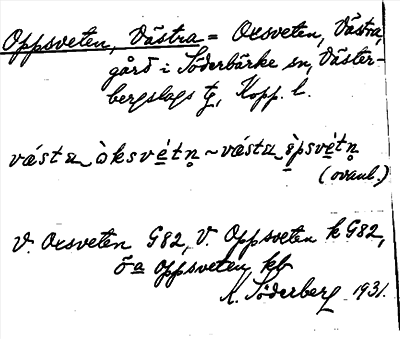 Oppsveten, Västra = Oxsveten, Västra,
gård i Söderbärke sn, Väster-
bergslags tg, Kopp. l.
västa òksvétn ~ västa òpsvétn
(ovanl.)
V. Oxsveten G82, V. Oppsveten k G82,
öa oppsveten kb
A. Söderberg 1931.